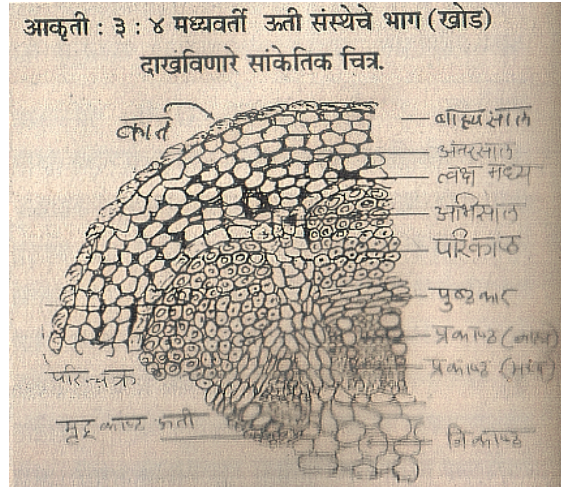 आकृती : ३ : ४ मध्यवर्ती ऊती संस्थेचे भाग (खोड)
दाखंविणारे सांकेतिक चित्र.
कात
बाह्यसाल
अंतरसाल
त्वक्ष मध्य
अभिसाल
परिकाष्ठ
प्रकाष्ठ
प्रकाष्ठ (मध्य)
परिचक्र
मृदू काष्ठ ऊती
निकाष्ठ